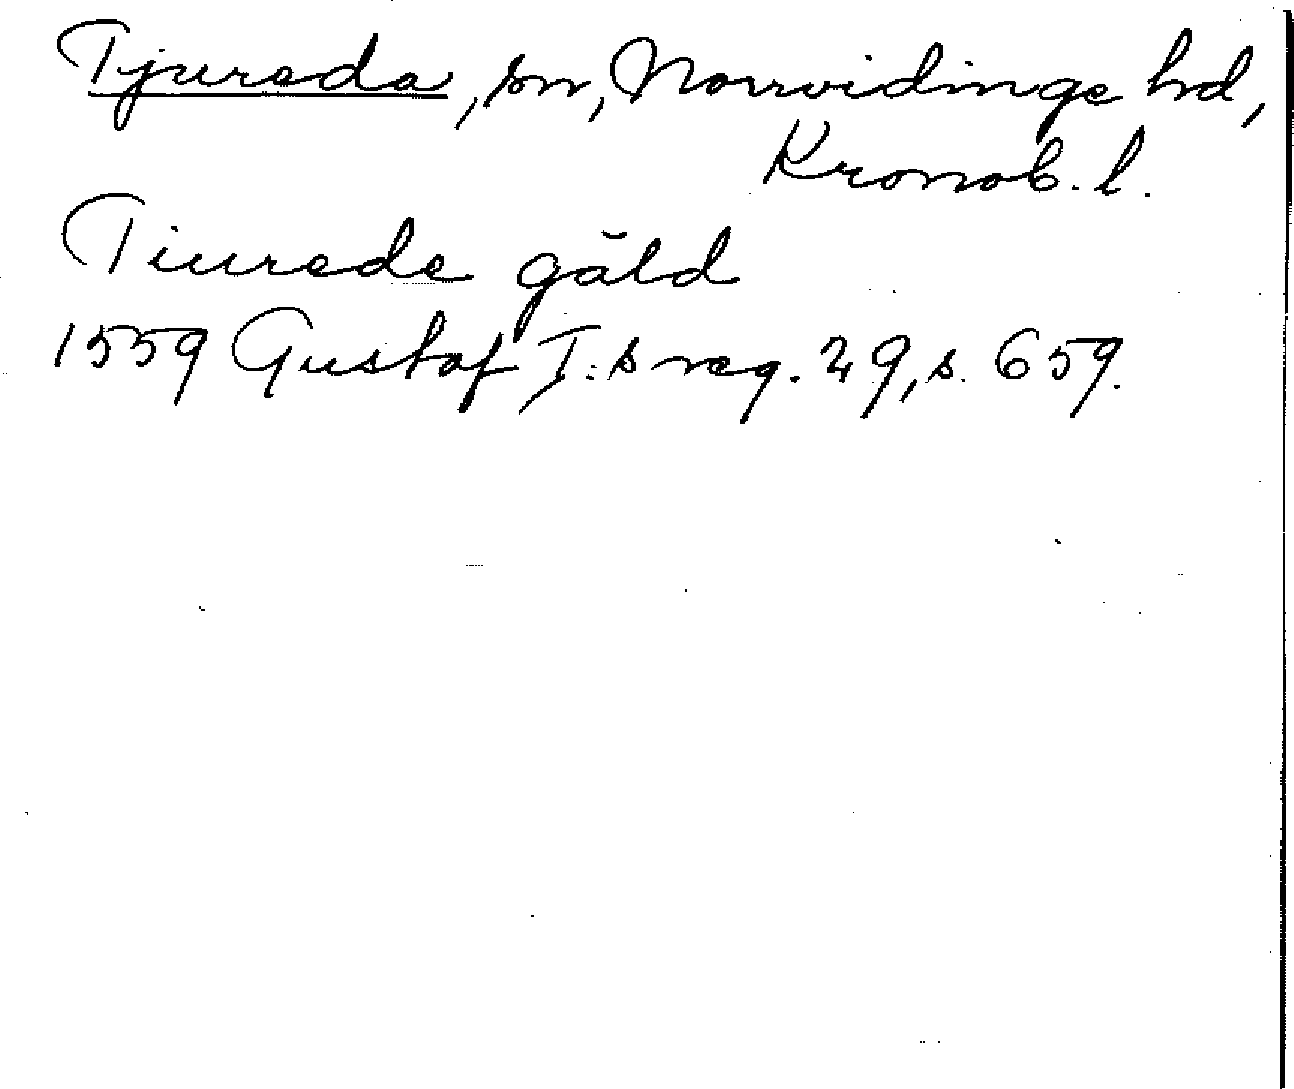 Tjureda, sn, Norrvidinge hd,
Kronob. l.
Tiurede gäld
1559 Gustaf I:s reg. 29, s. 659.